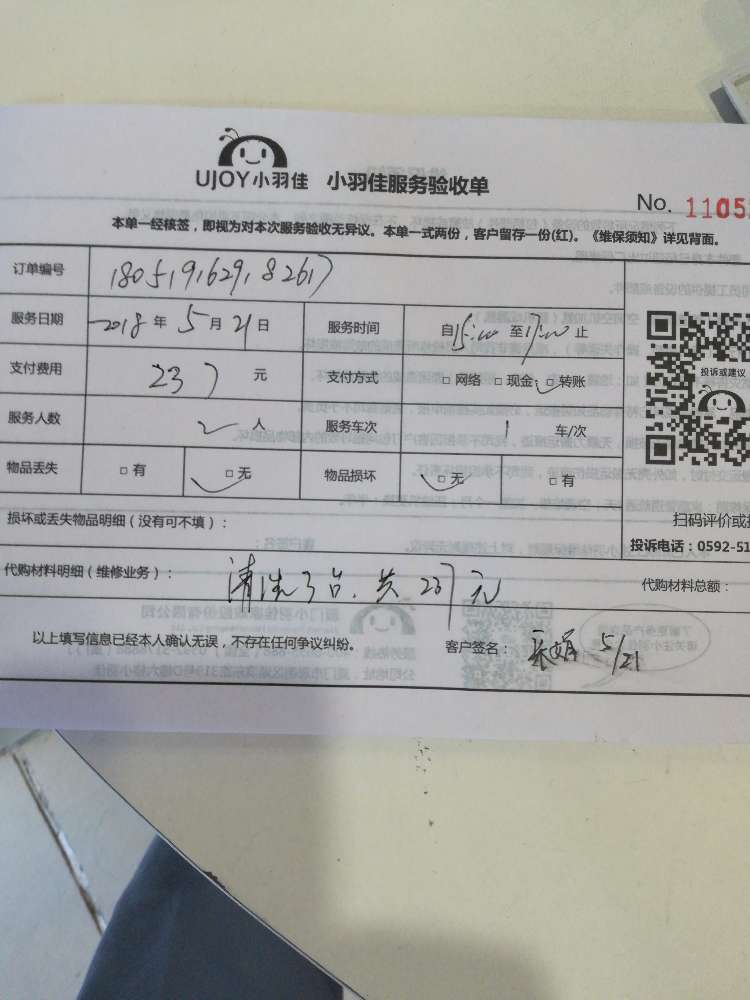 UJOY小羽佳 小羽佳服务验收单
No. 1105
本单一经核签，即视为对本次服务验收无异议。本单一式两份，客户留存一份(红)。《维保须知》详见背面。
订单编号 18051916291,82617
服务日期 2018 年 5 月 21 日 服务时间 自 15:00 至 17:00 止
支付费用 237 元 支付方式 □ 网络 □ 现金 □ 转账
投诉或建议
服务人数 2 人 服务车次 1 车/次
物品丢失 □ 有 □ 无 物品损坏 □ 无 □ 有
损坏或丢失物品明细（没有可不填）：
扫码评价或
投诉电话：0592-51
代购材料明细（维修业务）： 清洗3台，共237元 代购材料总额：
以上填写信息已经本人确认无误，不存在任何争议纠纷。 客户签名： 5/21